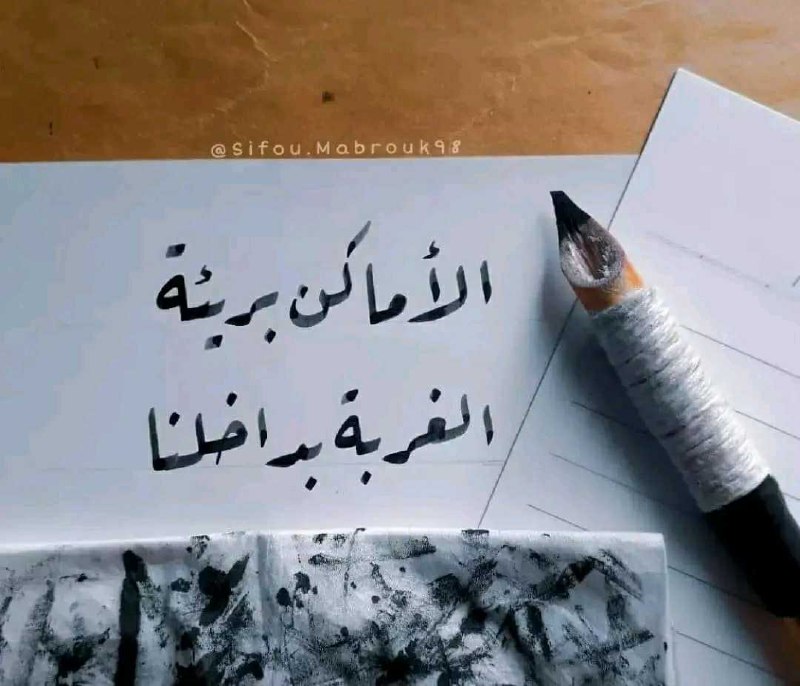 @Sifou.Mabrouk98
الأماكن بريئة
الغربة بداخلنا